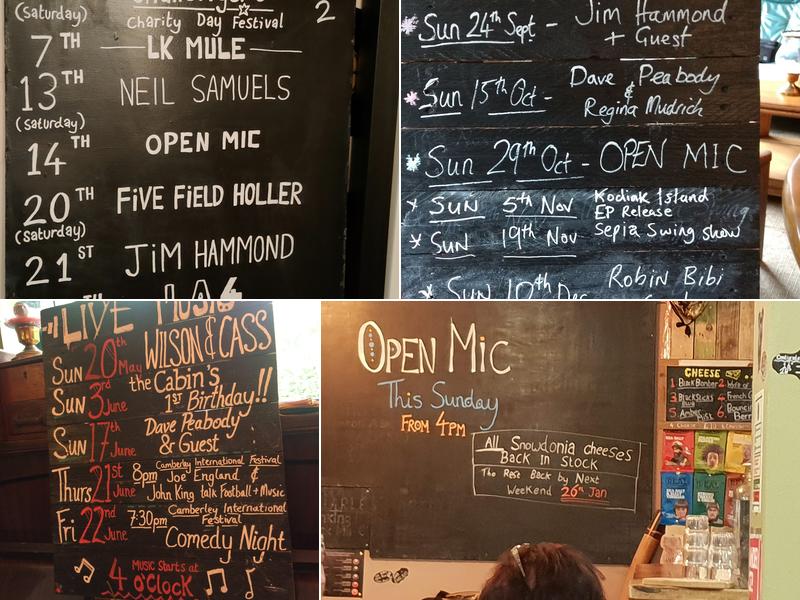 (Saturday)
Charity Day Festival
2
7TH LK MULE
13TH NEIL SAMUELS
(Saturday)
14TH OPEN MIC
20TH FiVE FiELD HOLLER
(Saturday)
21ST JiM HAMMOND
Sun 24th Sept - Jim Hammond
+ Guest
Sun 15th Oct - Dave Peabody
&
Regina Mudrich
Sun 29th Oct - OPEN MIC
SUN 5th Nov Kodiak Island
EP Release
SUN 19th Nov Sepia Swing show
Sun 10th Dec Robin Bibi
LIVE MUSIC
Sun 20th May WILSON & CASS
Sun 3rd June the Cabin's
1st Birthday!!
Sun 17th June Dave Peabody
& Guest
Thurs 21st June Camberley International Festival
8pm Joe England &
John King talk Football + Music
Fri 22nd June 7:30pm Camberley International
Festival
Comedy Night
MUSIC STARTS AT
4 O'CLOCK
OPEN MiC
This Sunday
FROM 4PM
All Snowdonia cheeses
BACK IN STOCK
The Rest Back by Next
Weekend 26th Jan
CHEESE
1. Black Bomber 2.
3. Black Sticks 4. French
Blue
5. Amber 6.
Mist